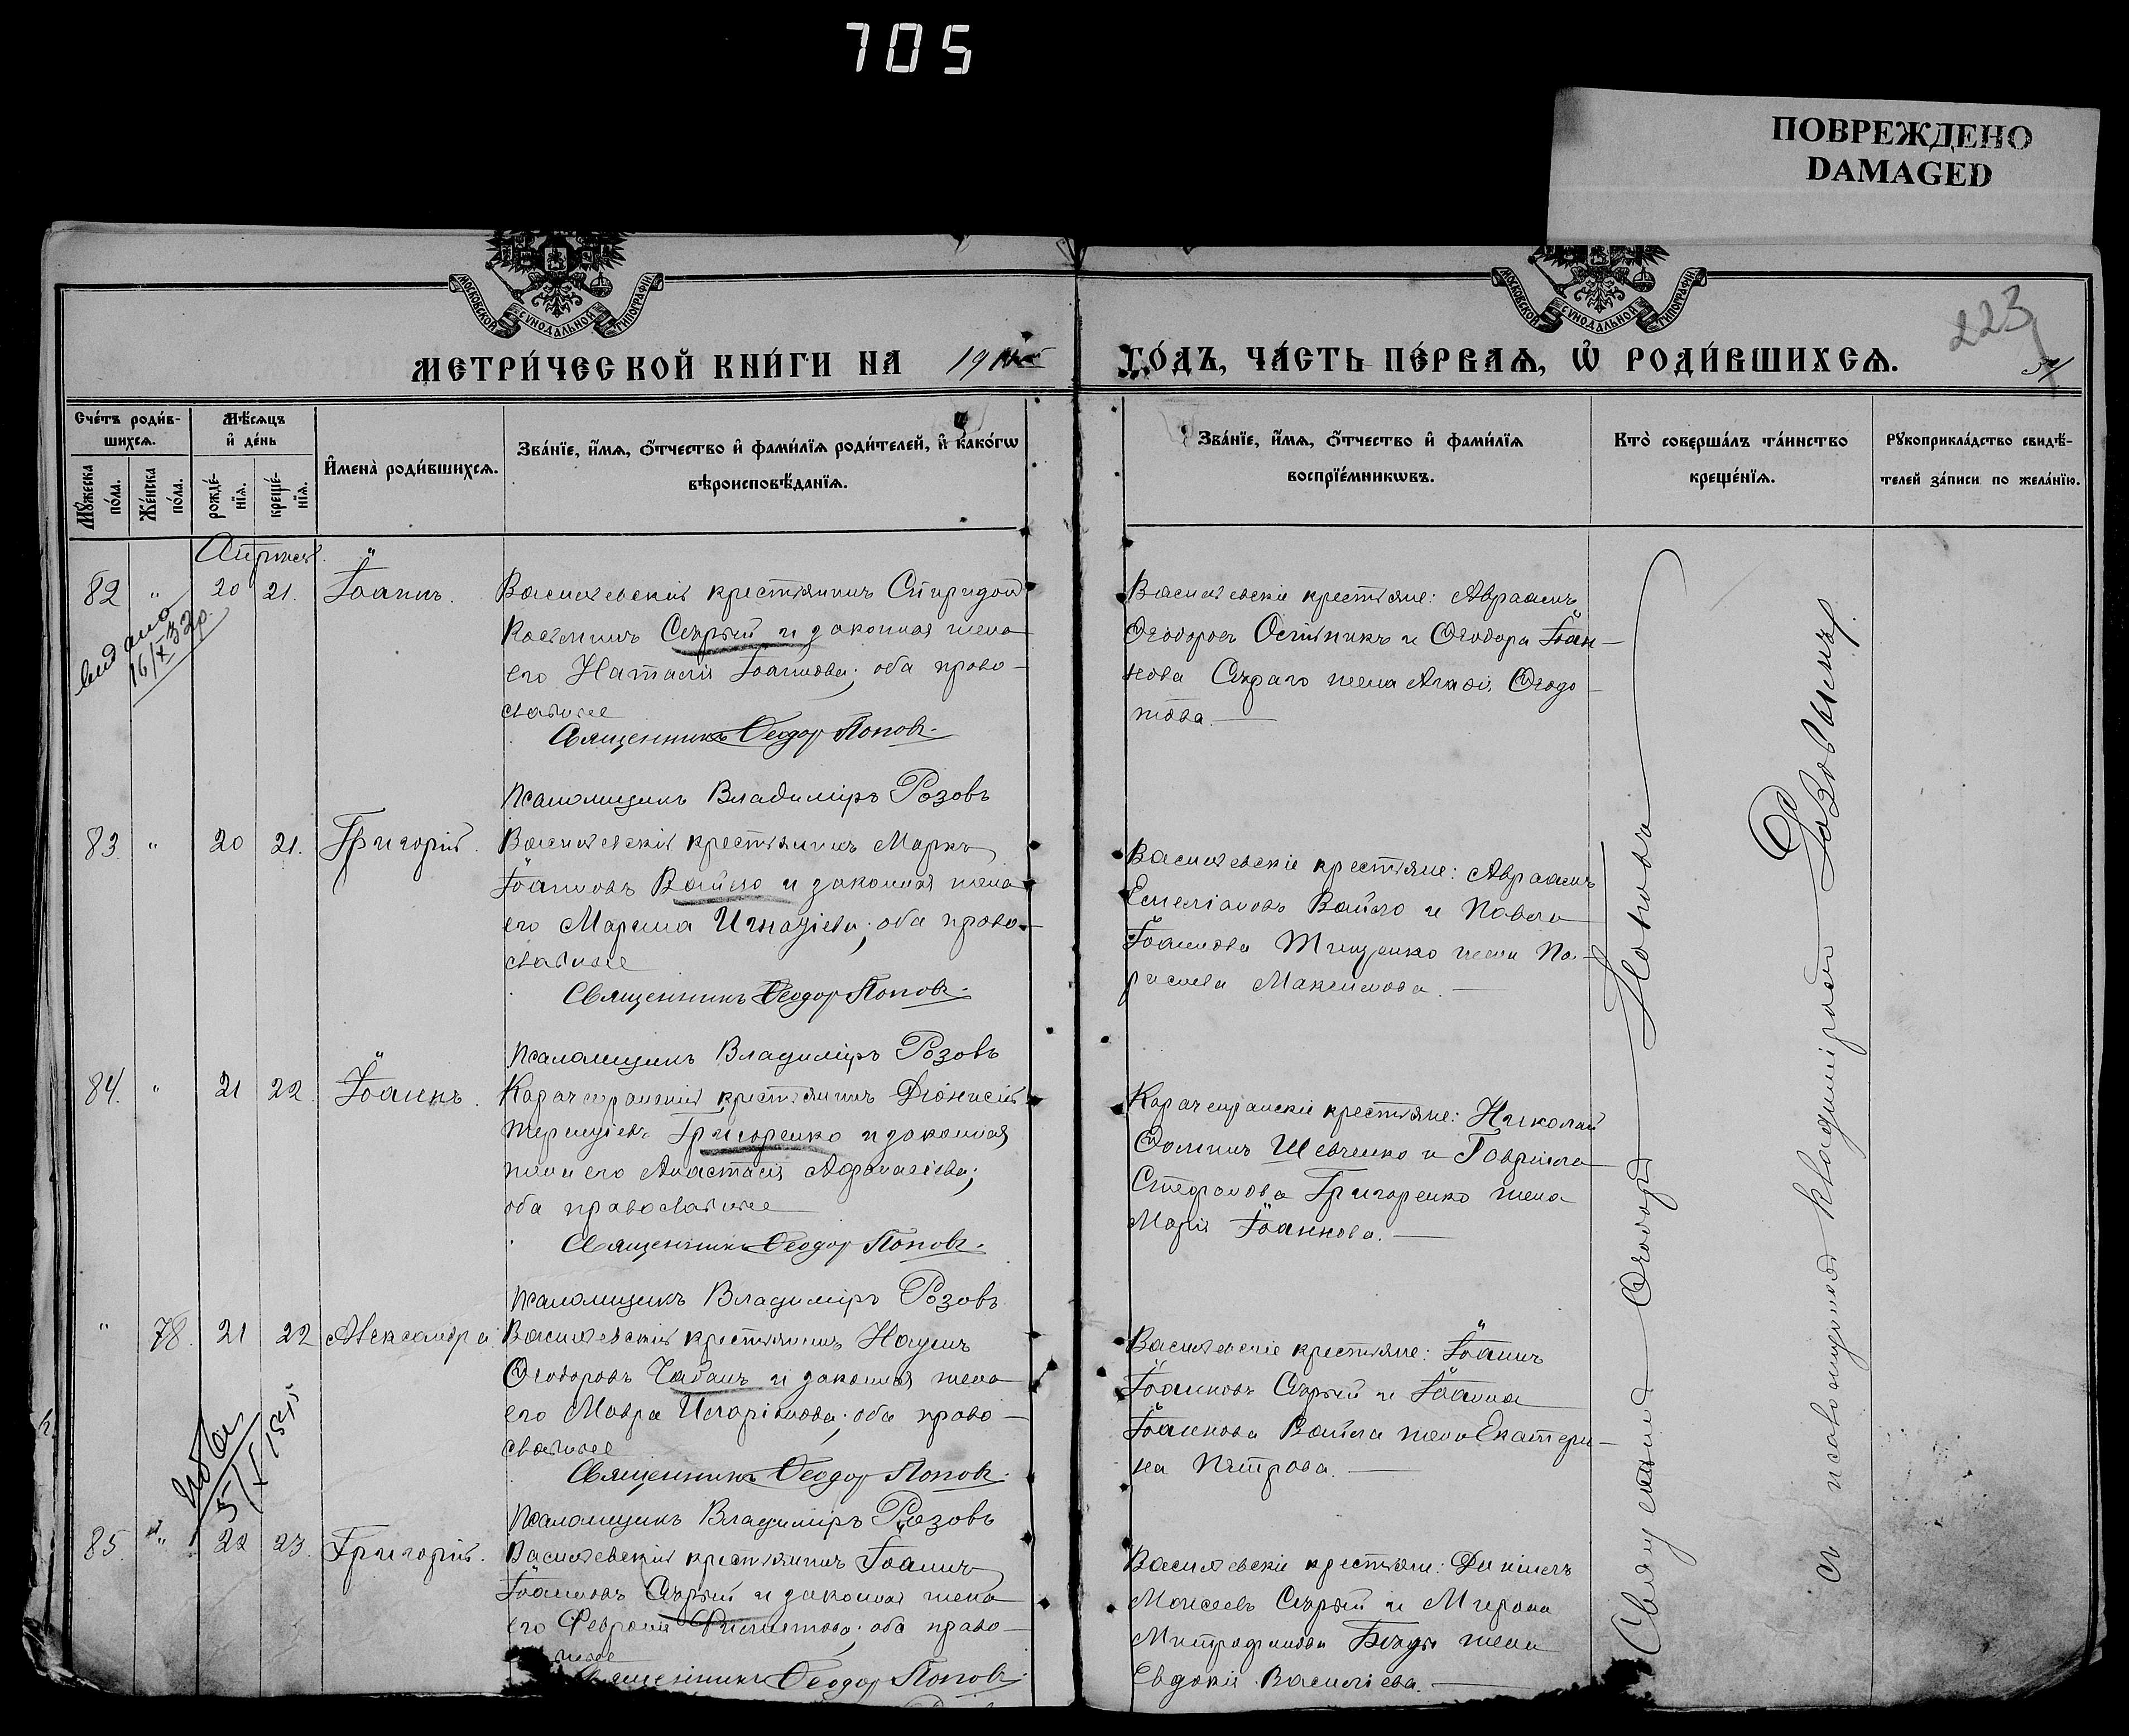 705
ПОВРЕЖДЕНО
DAMAGED
МОСКОВСКОЙ СѴНОДАЛЬНОЙ ТИПОГРАФІИ
МОСКОВСКОЙ СѴНОДАЛЬНОЙ ТИПОГРАФІИ
223
МЕТРИ́ЧЕСКОЙ КНИ́ГИ НА 191
ГО́ДЪ, ЧА́СТЬ ПЕ́РВАѦ, Ѿ РОДИ́ВШИХСѦ.
Сче́тъ роди́в-
шихсѧ.
Мꙋ́жеска по́ла.
Же́нска по́ла.
Мѣ́сѧцъ
и҆ де́нь
рожде́-
нїѧ.
креще́-
нїѧ.
И҆мена̀ роди́вшихсѧ.
Зва́нїе, и҆́мѧ, ѻ҆́тчество и҆ фами́лїѧ роди́телей, и҆ како́гѡ
вѣроисповѣ́данїѧ.
Зва́нїе, и҆́мѧ, ѻ҆́тчество и҆ фами́лїѧ
воспрїе́мникѡвъ.
Кто̀ соверша́лъ та́инство
креще́нїѧ.
Рꙋкоприкла́дство свидѣ́-
телей за́писи по жела́нїю.
Апрѣль.
82 " 20 21. Іоаннъ.
Васильевскій крестьянинъ Спиридонъ
Сѣрый и законная жена
его Наталія Іоаннова; оба право-
славные
Священникъ Ѳеодор Поповъ.
Псаломщикъ Владиміръ Розовъ
Васильевскіе крестьяне: Авраамъ
Ѳеодоровъ и Ѳеодора Іоан-
нова Сѣраго жена
выдано
16/X 32 р.
83. " 20 21. Григорій.
Васильевскій крестьянинъ Маркъ
Іоанновъ Вайло и законная жена
его Марина Игнатіева; оба право-
славные
Священникъ Ѳеодор Поповъ.
Псаломщикъ Владиміръ Розовъ
Васильевскіе крестьяне: Авраамъ
Емеліановъ Вайло и Павла
Іоаннова Тищенко жена Па-
Максимова.
84. " 21 22. Іоаннъ.
крестьянинъ Діонисій
Терентіевъ Григоренко и законная
жена его Анастасія Афанасіева;
оба православные
Священникъ Ѳеодор Поповъ.
Псаломщикъ Владиміръ Розовъ
крестьяне: Николай
Ѳоминъ Шевченко и Гавріила
Стефанова Григоренко жена
Марія Іоаннова.
" 78. 21 22 Александра
Васильевскій крестьянинъ Наумъ
Ѳеодоровъ Чабанъ и законная жена
его Мавра Иларіонова; оба право-
славные
Священникъ Ѳеодор Поповъ.
Псаломщикъ Владиміръ Розовъ
Васильевскіе крестьяне: Іоаннъ
Іоанновъ Сѣрый и Іоанна
Іоаннова Вайла жена Екатери-
на Петрова.
85. " 22 23. Григорій.
Васильевскій крестьянинъ Іоаннъ
Іоанновъ Сѣрый и законная жена
его Февронія Филиппова; оба право-
Священникъ Ѳеодор Поповъ.
Васильевскіе крестьяне: Даніилъ
Моисеевъ Сѣрый и Мирона
Митрофанова жена
Евдокія Василіева.
Священникъ Ѳеодоръ Поповъ
съ псаломщикомъ Владиміромъ Розовымъ.